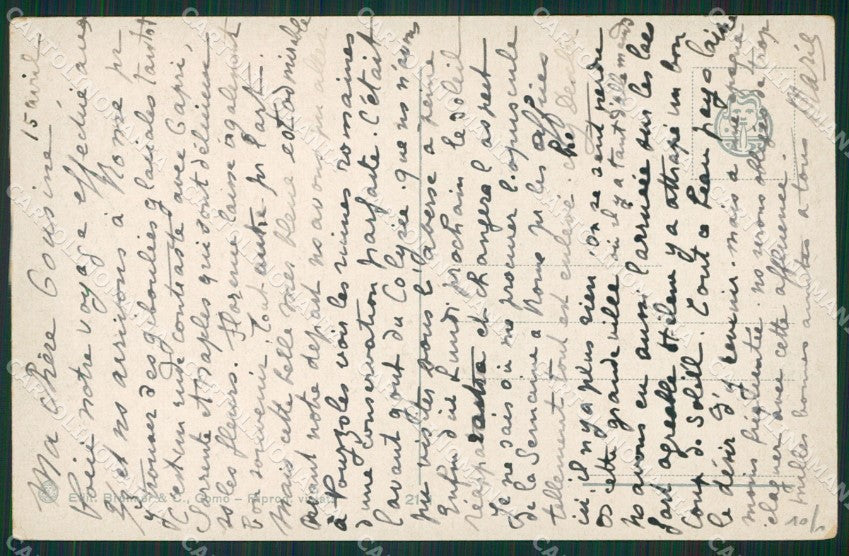 15 avril
Ma chère Cousine,
Voici notre voyage effectué
et ns arrivons à Rome pr
y trouver des giboulées glaciales tantôt
C'est un rude contraste avec Capri,
Sorrente et Naples qui sont délicieux
ss les fleurs. Florence laisse également
bon souvenir, tout autre pr l'art.
Mais cette belle mer bleue est admirable
avant notre départ ns avons pu aller
à Pouzzoles voir les ruines romaines
d'une conservation parfaite. C'était
l'avant goût du Colysée que ns n'avons
pu visiter sous l'averse à peine
Enfin d'ici Lundi prochain le soleil
réapparaîtra et changera l'aspect
Je ne sais où me procurer l'opuscule
de la Semaine à Rome pr les offices
tellement tout est enlevé chez
ici il n'y a plus rien. On se sent perdu
ds cette grande ville où il y a tant d'allemands
ns avons eu aussi l'arrivée sur les lacs
fort agréable Hélène y a attrapé un bon
coup de soleil. Tout ce beau pays laisse
le désir d'y revenir, mais à une époque
moins fréquentée. ns serons obligés de trop
avec cette affluence.
milles bonnes amitiés à tous Marie
Edit. Brunner & C., Como
CARTOLINOMANIA